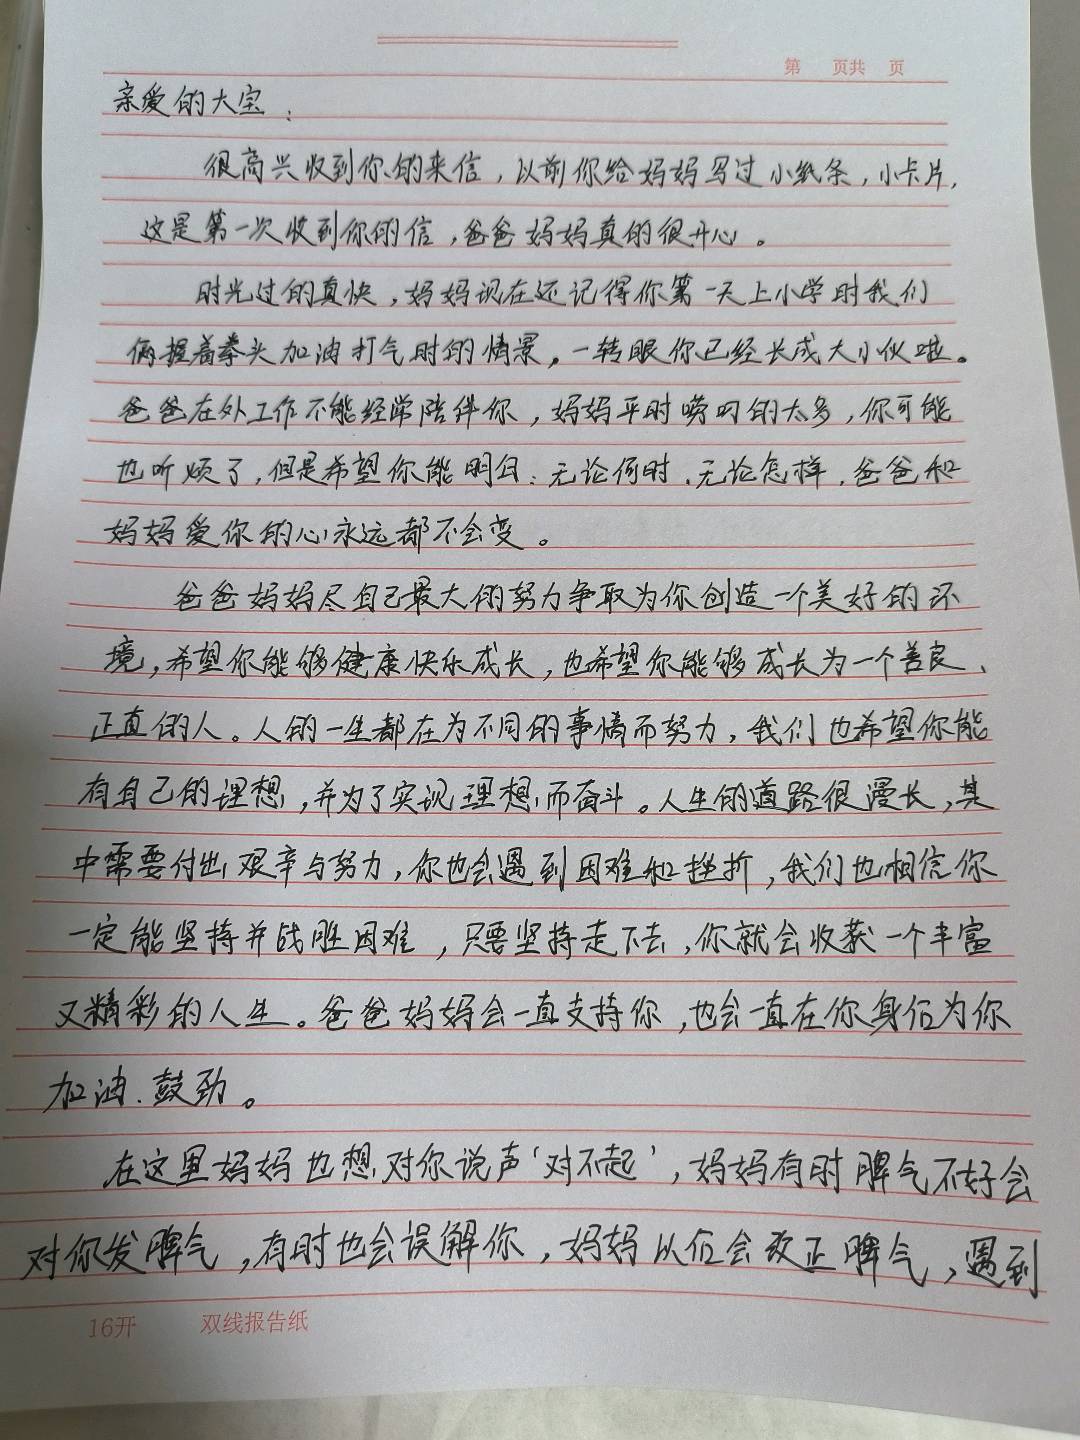 第 页共 页
亲爱的大宝：
很高兴收到你的来信，以前你给妈妈写过小纸条，小卡片，
这是第一次收到你的信，爸爸妈妈真的很开心。
时光过的真快，妈妈现在还记得你第一天上小学时我们
俩握着拳头加油打气时的情景，一转眼你已经长成大小伙啦。
爸爸在外工作不能经常陪伴你，妈妈平时唠叨的太多，你可能
也听烦了，但是希望你能明白：无论何时、无论怎样，爸爸和
妈妈爱你的心永远都不会变。
爸爸妈妈尽自己最大的努力争取为你创造一个美好的环
境，希望你能够健康快乐成长，也希望你能够成长为一个善良、
正直的人。人的一生都在为不同的事情而努力，我们也希望你能
有自己的理想，并为了实现理想而奋斗。人生的道路很漫长，其
中需要付出艰辛与努力，你也会遇到困难和挫折，我们也相信你
一定能坚持并战胜困难，只要坚持走下去，你就会收获一个丰富
又精彩的人生。爸爸妈妈会一直支持你，也会一直在你身后为你
加油、鼓劲。
在这里妈妈也想对你说声‘对不起’，妈妈有时脾气不好会
对你发脾气，有时也会误解你，妈妈以后会改正脾气，遇到
16开 双线报告纸